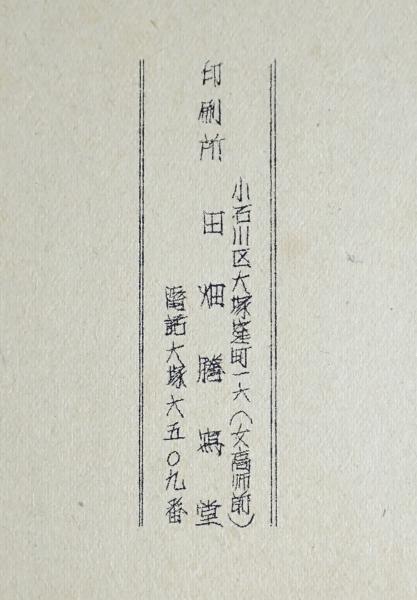 小石川区大塚窪町一六(女高師前)
印刷所 田畑謄寫堂
電話大塚六五〇九番